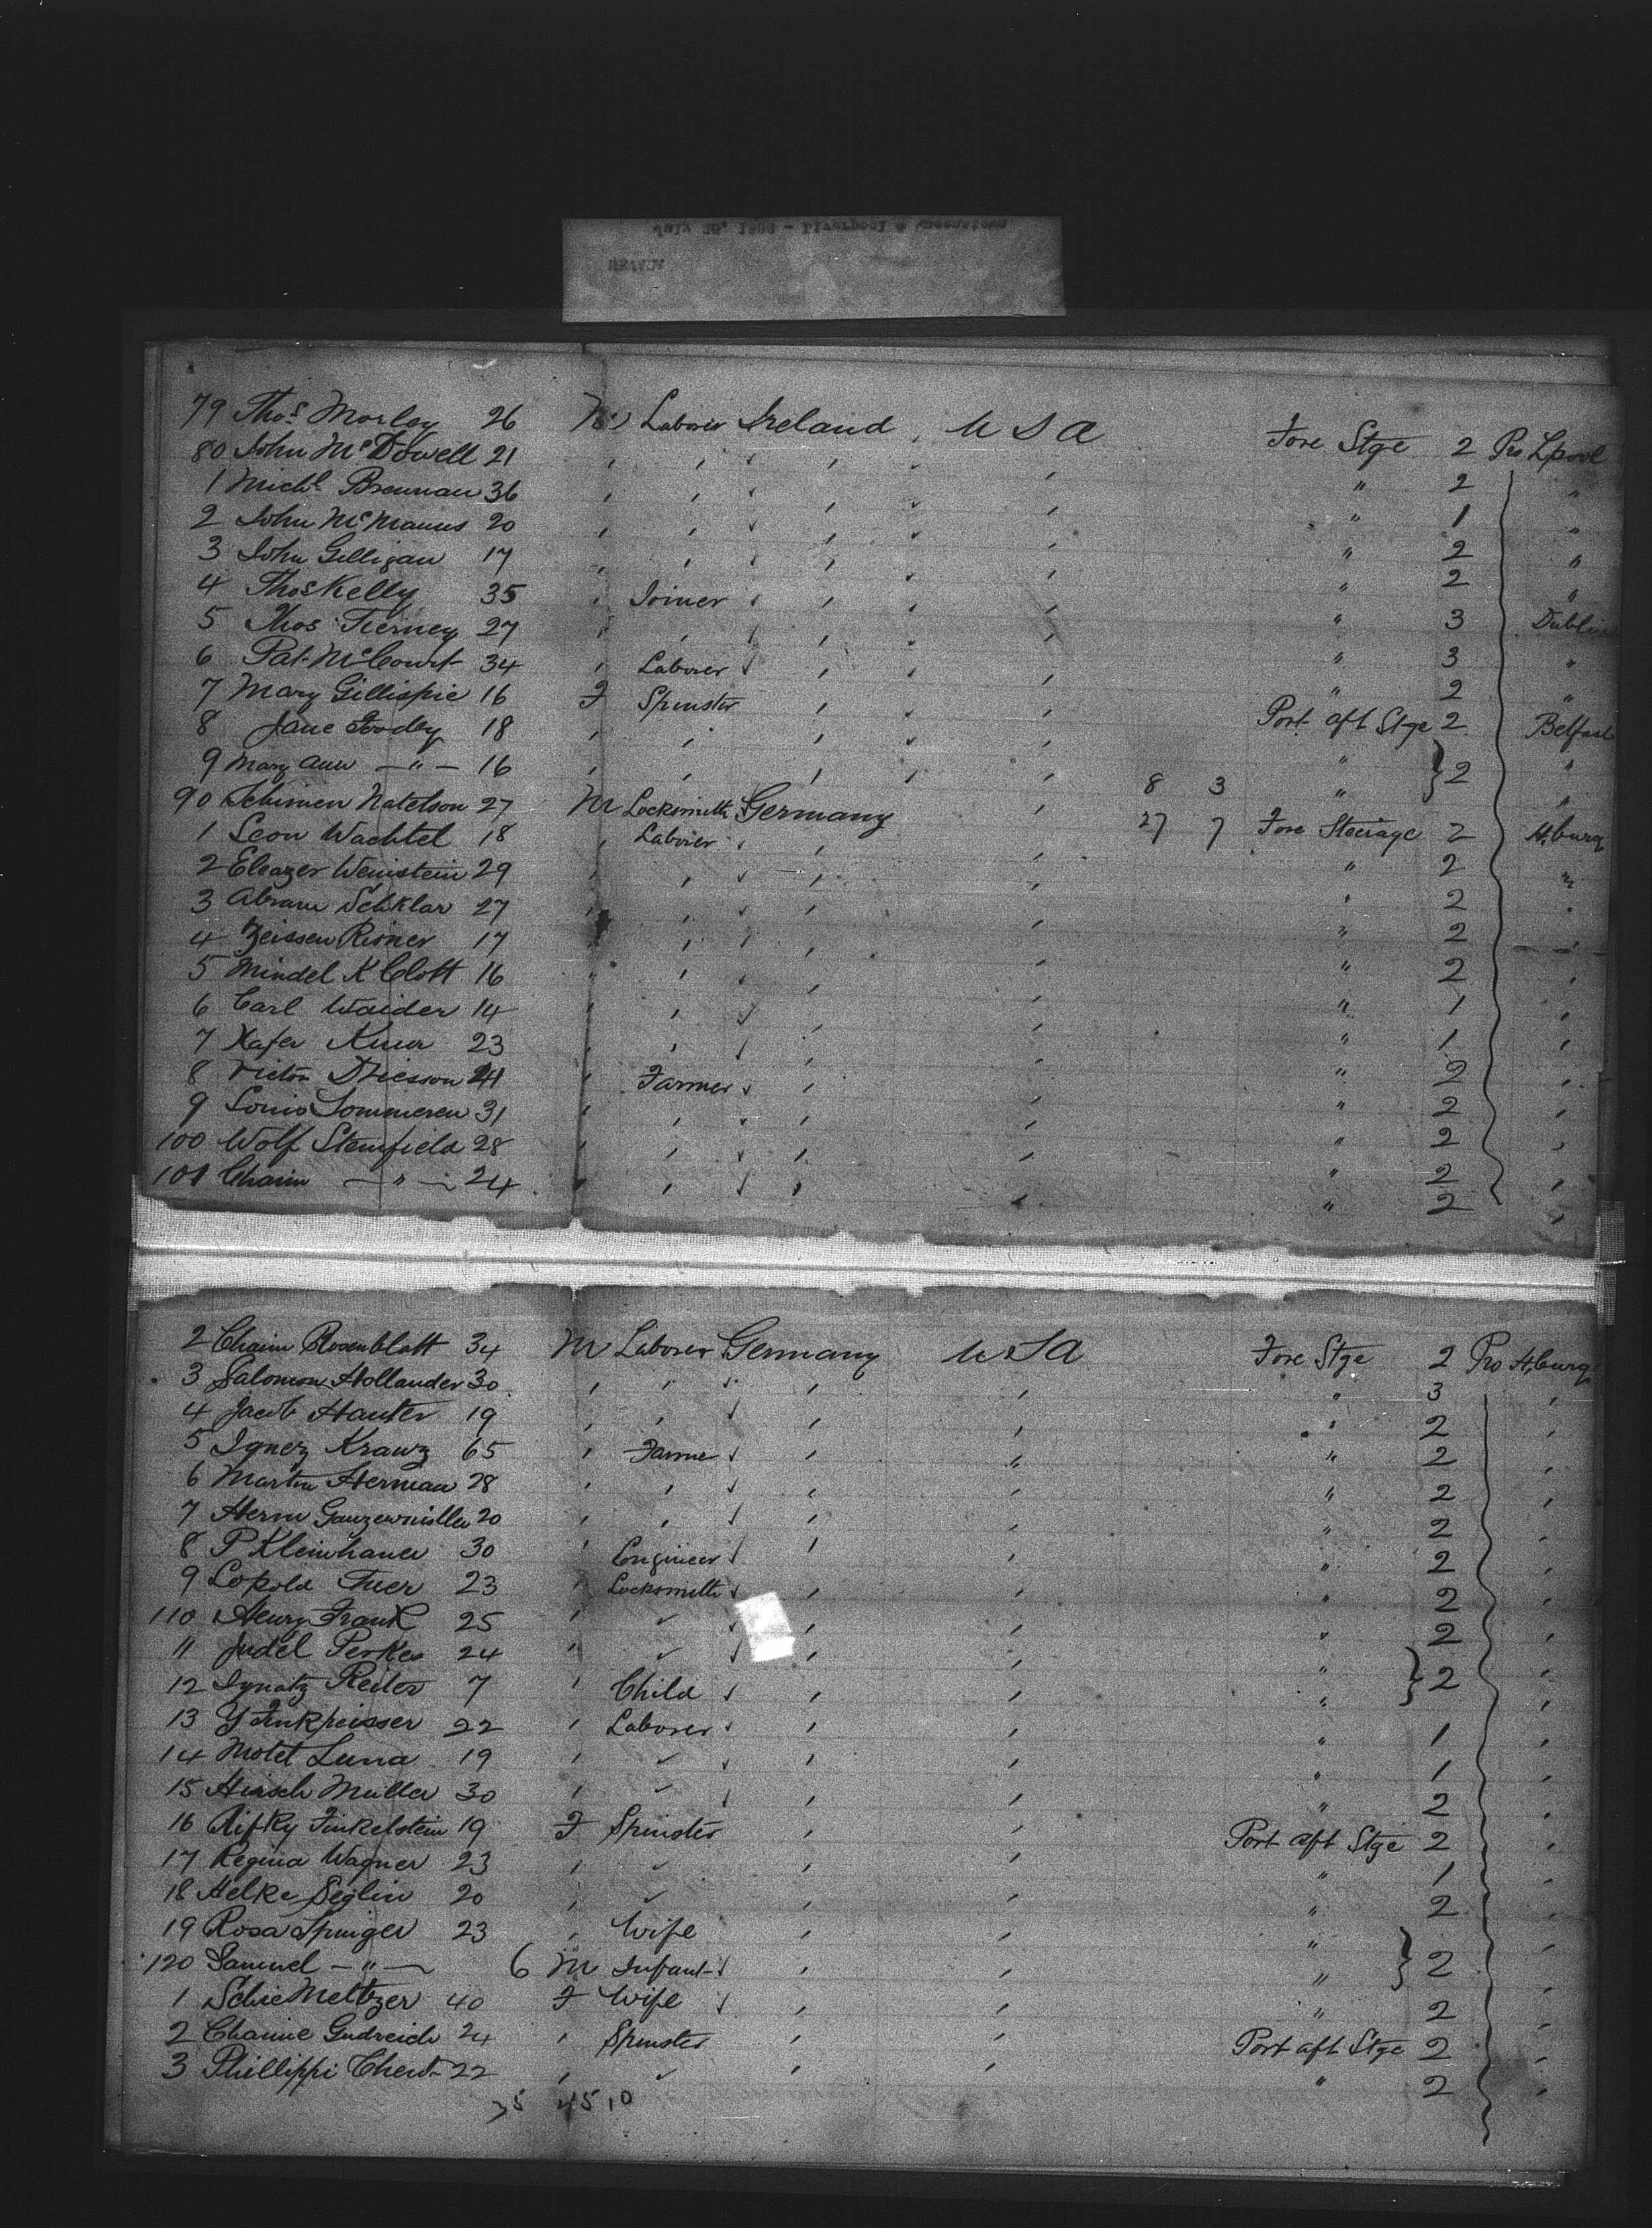 July 26, 188 - Liverpool & Queenstown
NEVADA
79 Thos Morley 26 M Laborer Ireland U S A Fore Stge 2 Pro Lpool
80 John McDowell 21 " " " " " 2 "
1 Michl Brennan 36 " " " " " 1 "
2 John McManus 20 " " " " " 2 "
3 John Gilligan 17 " " " " " 2 "
4 Thos Kelly 35 " Joiner " " " 3 Dublin
5 Thos Tierney 27 " " " " " 3 "
6 Pat McCourt 34 " Laborer " " " 2 "
7 Mary Gillispie 16 F Spinster " " Port aft Stge 2 Belfast
8 Jane 18 " " " " " } 2 "
9 Mary Ann — " — 16 " " " " 8 3 " "
90 Schimen Natelson 27 M Locksmith Germany " 27 7 Fore Steerage 2 H,burg
1 Leon Wachtel 18 " Laborer " " " 2 "
2 Eleazer Weinstein 29 " " " " " 2 "
3 Abram Schklar 27 " " " " " 2 "
4 Zeissen Risner 17 " " " " " 2 "
5 Mindel K Clott 16 " " " " " 1 "
6 Carl Waider 14 " " " " " 1 "
7 Xafer 23 " " " " " 2 "
8 Victor 24 " Farmer " " " 2 "
9 Louis Sommeren 31 " " " " " 2 "
100 Wolf Steinfield 28 " " " " " 2 "
101 Chaim — " — 24 " " " " " 2 "
2 Chaim Rosenblatt 34 M Laborer Germany U S A Fore Stge 2 Pro H,burg
3 Salomon Hollander 30 " " " " " 3 "
4 Jacob Hauter 19 " " " " " 2 "
5 Ignez Krawz 65 " Farmer " " " 2 "
6 Martin Herman 28 " " " " " 2 "
7 Herm 20 " " " " " 2 "
8 P Kleinhaner 30 " Engineer " " " 2 "
9 Lopold Tuer 23 " Locksmith " " " 2 "
110 Henry Frank 25 " " " " " 2 "
11 Judel Perkes 24 " " " " " } 2 "
12 Ignatz Reiter 7 " Child " " " "
13 Y Finkpeisser 22 " Laborer " " " 1 "
14 Motet Luna 19 " " " " " 1 "
15 Hirsch Muller 30 " " " " " 2 "
16 Rifky Finkelstein 19 F Spinster " " Port aft Stge 2 "
17 Regina Wagner 23 " " " " " 1 "
18 Helke Seglin 20 " " " " " 2 "
19 Rosa Springer 23 " Wife " " " } 2 "
120 Samuel — " — 6 M Infant " " " "
1 Schie Meltzer 40 F Wife " " " 2 "
2 Chanie Gudreich 24 " Spinster " " Port aft Stge 2 "
3 Phillippi Chert 22 " " " " " 2 "
35 45 10